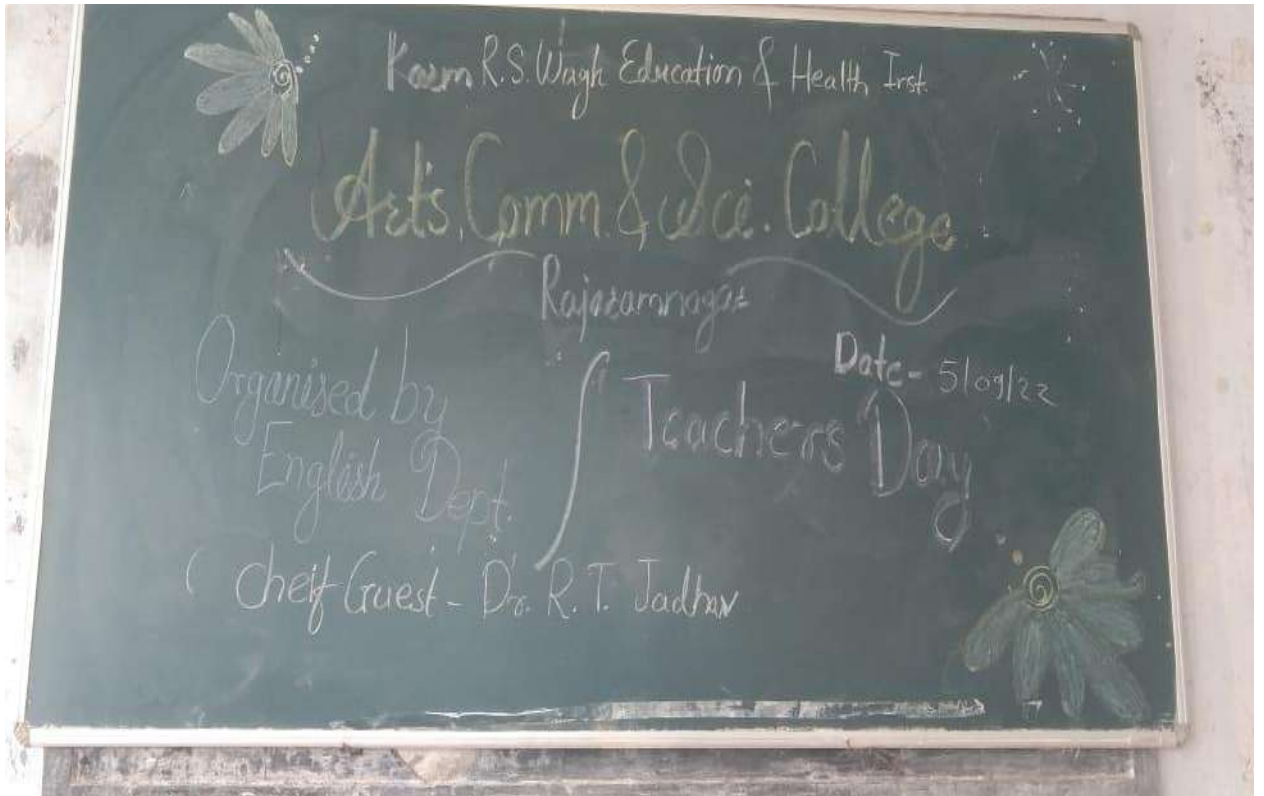 Kazm R.S. Wagh Education & Health Inst.
Arts, Comm. & Sci. College
Rajaramnagar
Date - 5/09/22
Organised by
English Dept.
Teachers Day
Cheif Guest - Dr. R. T. Jadhav